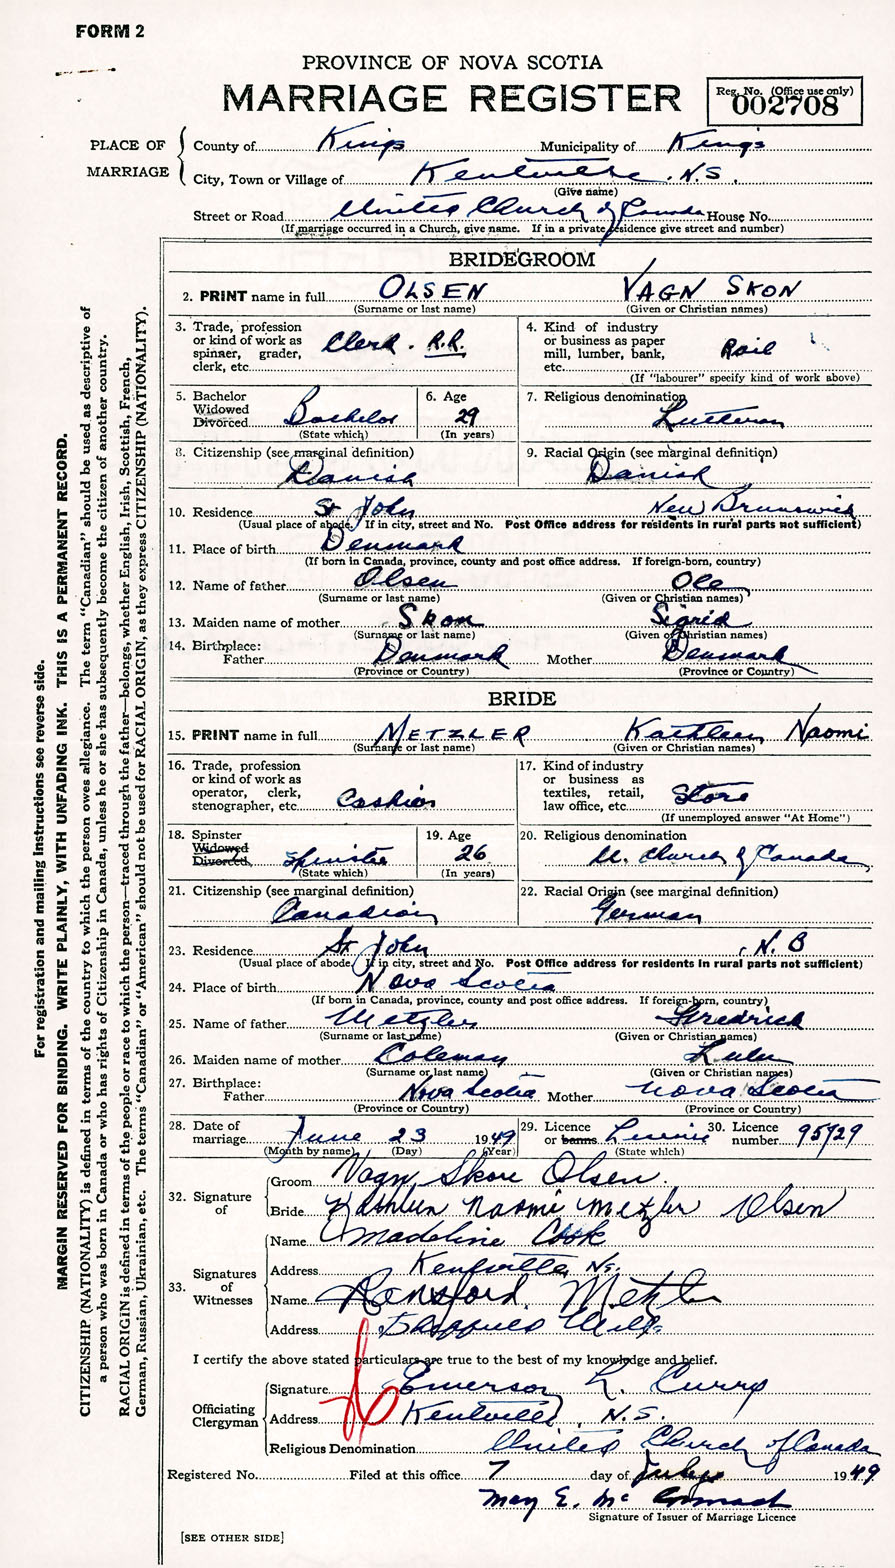 FORM 2
PROVINCE OF NOVA SCOTIA
MARRIAGE REGISTER
Reg. No. (Office use only)
002708
PLACE OF MARRIAGE
County of Kings Municipality of Kings
City, Town or Village of Kentville. N.S.
(Give name)
Street or Road United Church of Canada House No.
(If marriage occurred in a Church, give name. If in a private residence give street and number)
BRIDEGROOM
2. PRINT name in full OLSEN VAGN SKON
(Surname or last name) (Given or Christian names)
3. Trade, profession or kind of work as spinner, grader, clerk, etc. Clerk. R.R.
4. Kind of industry or business as paper mill, lumber, bank, etc. Rail
(If "labourer" specify kind of work above)
5. Bachelor Widowed Divorced Bachelor
(State which)
6. Age 29
(In years)
7. Religious denomination Lutheran
8. Citizenship (see marginal definition) Danish
9. Racial Origin (see marginal definition) Danish
10. Residence St John New Brunswick
(Usual place of abode. If in city, street and No. Post Office address for residents in rural parts not sufficient)
11. Place of birth Denmark
(If born in Canada, province, county and post office address. If foreign-born, country)
12. Name of father Olsen Ole
(Surname or last name) (Given or Christian names)
13. Maiden name of mother Skon Sigrid
(Surname or last name) (Given or Christian names)
14. Birthplace:
Father Denmark Mother Denmark
(Province or Country) (Province or Country)
BRIDE
15. PRINT name in full METZLER Kathleen Naomi
(Surname or last name) (Given or Christian names)
16. Trade, profession or kind of work as operator, clerk, stenographer, etc. Cashier
17. Kind of industry or business as textiles, retail, law office, etc. Store
(If unemployed answer "At Home")
18. Spinster Widowed Divorced Spinster
(State which)
19. Age 26
(In years)
20. Religious denomination U. Church of Canada
21. Citizenship (see marginal definition) Canadian
22. Racial Origin (see marginal definition) German
23. Residence St John, N.B
(Usual place of abode. If in city, street and No. Post Office address for residents in rural parts not sufficient)
24. Place of birth Nova Scotia
(If born in Canada, province, county and post office address. If foreign-born, country)
25. Name of father Metzler Fredrick
(Surname or last name) (Given or Christian names)
26. Maiden name of mother Coleman Lulu
(Surname or last name) (Given or Christian names)
27. Birthplace:
Father Nova Scotia Mother Nova Scotia
(Province or Country) (Province or Country)
28. Date of marriage June 23 1949
(Month by name) (Day) (Year)
29. Licence or banns License
(State which)
30. Licence number 95929
32. Signature of
Groom Vagn Skon Olsen.
Bride Kathleen Naomi Metzler Olsen
33. Signatures of Witnesses
Name Madeline Cook
Address Kentville, Ns.
Name Hansford Metzler
Address Mills
I certify the above stated particulars are true to the best of my knowledge and belief.
Officiating Clergyman
Signature Emerson L. Curry
Address Kentville, N.S.
Religious Denomination United Church of Canada
Registered No. Filed at this office 7 day of July 1949
May E. McCormack
Signature of Issuer of Marriage Licence
[SEE OTHER SIDE]
For registration and mailing instructions see reverse side.
MARGIN RESERVED FOR BINDING. WRITE PLAINLY, WITH UNFADING INK. THIS IS A PERMANENT RECORD.
CITIZENSHIP (NATIONALITY) is defined in terms of the country to which the person owes allegiance. The term "Canadian" should be used as descriptive of
a person who was born in Canada or who has rights of Citizenship in Canada, unless he or she has subsequently become the citizen of another country.
RACIAL ORIGIN is defined in terms of the people or race to which the person—traced through the father—belongs, whether English, Irish, Scottish, French,
German, Russian, Ukrainian, etc. The terms "Canadian" or "American" should not be used for RACIAL ORIGIN, as they express CITIZENSHIP (NATIONALITY).